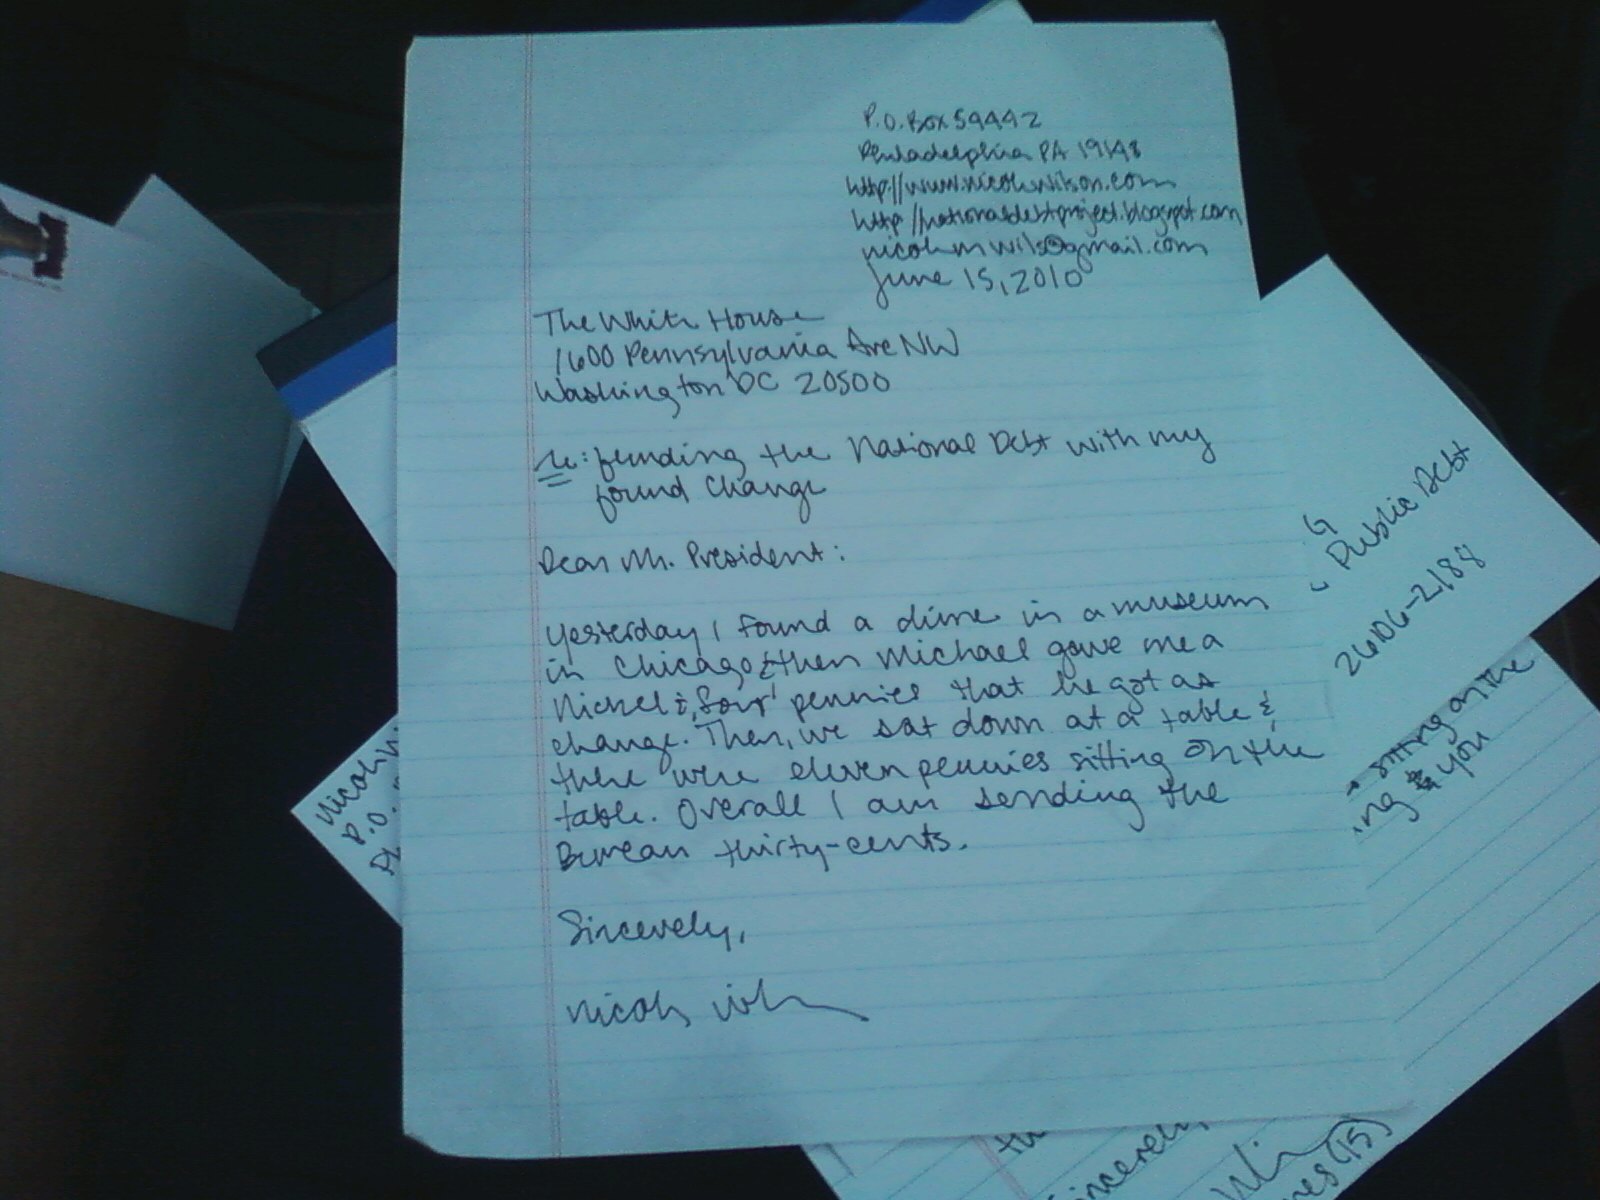 P.O. Box 59442
Philadelphia PA 19148
http://www.nicolewilson.com
http://nationaldebtproject.blogspot.com
nicolemwils@gmail.com
June 15, 2010
The White House
1600 Pennsylvania Ave NW
Washington DC 20500
re: funding the National Debt with my
found change
Dear Mr. President:
Yesterday I found a dime in a museum
in Chicago & then Michael gave me a
Nickel & four pennies that he got as
change. Then, we sat down at a table &
there were eleven pennies sitting on the
table. Overall I am sending the
Bureau thirty-cents.
Sincerely,
Nicole Wilson
Public Debt
26106-2188
sitting on the
ng & you
Nicole
P.O.
Sincerely,
(15)